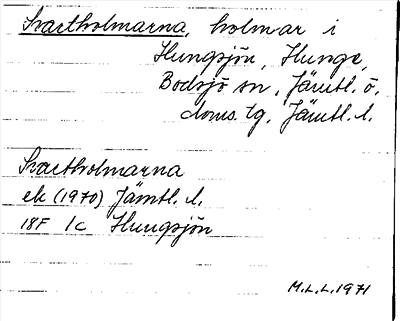 Svartholmarna, holmar i
Hungsjön, Hunge,
Bodsjö sn, Jämtl. ö.
doms. tg, Jämtl. l.
Svartholmarna
ek (1970) Jämtl. l.
18F 1c Hungsjön
M.L.L. 1971